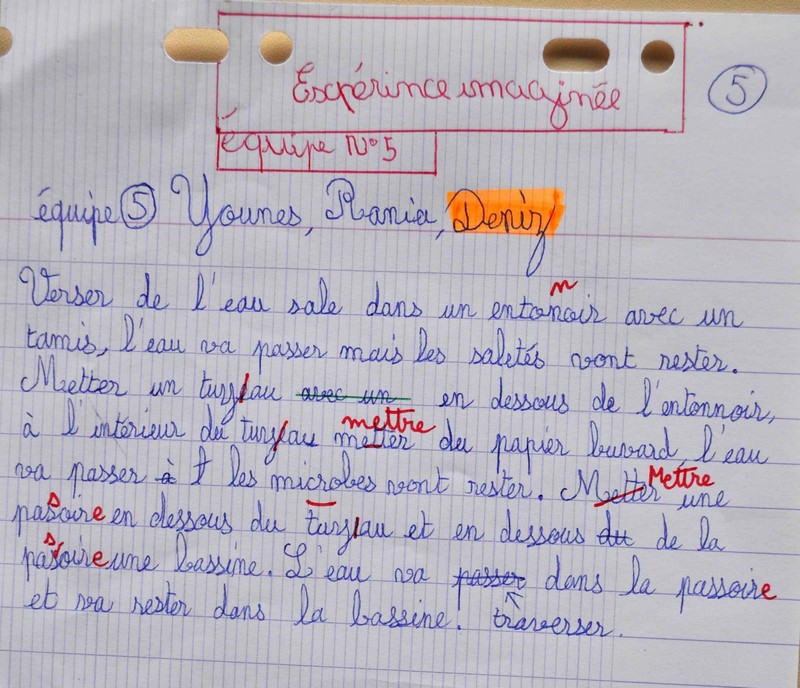 Expérince imaginée
5
équipe N°5
équipe 5 Younes, Rania, Deniz
n
Verser de l'eau sale dans un entonoir avec un
tamis, l'eau va passer mais les saletés vont rester.
Metter un tuyau avec un en dessous de l'entonnoir,
mettre
à l'intérieur du tuyau metter du papier buvard, l'eau
va passer à les microbes vont rester. Metter Mettre une
passoire en dessous du tuyau et en dessous du de la
passoire une bassine. L'eau va passer dans la passoire
et va rester dans la bassine. traverser.